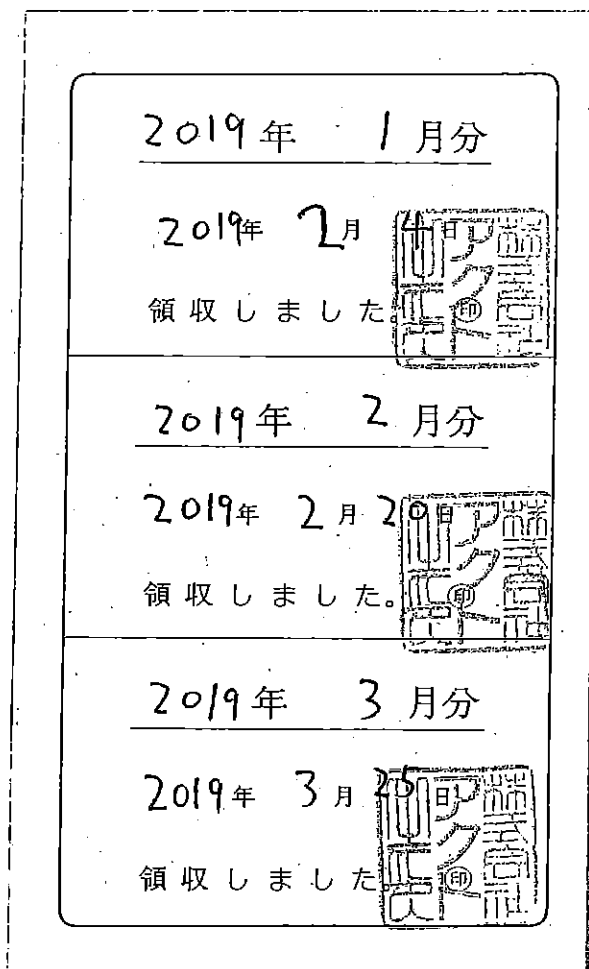 2019年 1月分
2019年 2月 4日
領収しました。
印
2019年 2月分
2019年 2月 20日
領収しました。
印
2019年 3月分
2019年 3月 25日
領収しました。
印